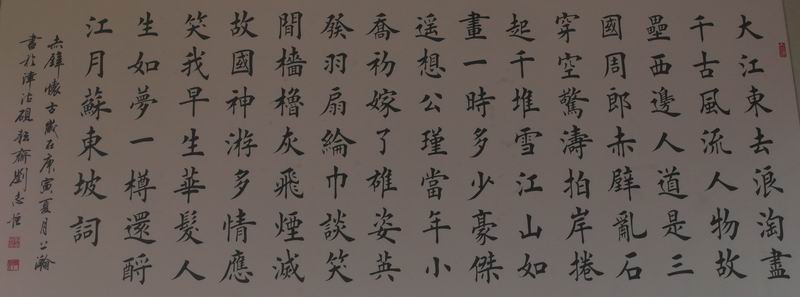 大江東去浪淘盡
千古風流人物故
壘西邊人道是三
國周郎赤壁亂石
穿空驚濤拍岸捲
起千堆雪江山如
畫一時多少豪傑
遥想公瑾當年小
喬初嫁了雄姿英
發羽扇綸巾談笑
間檣櫓灰飛煙滅
故國神游多情應
笑我早生華髮人
生如夢一樽還酹
江月蘇東坡詞
赤壁懷古歲在庚寅夏月上瀚
書於津沽硯耘齋劉志